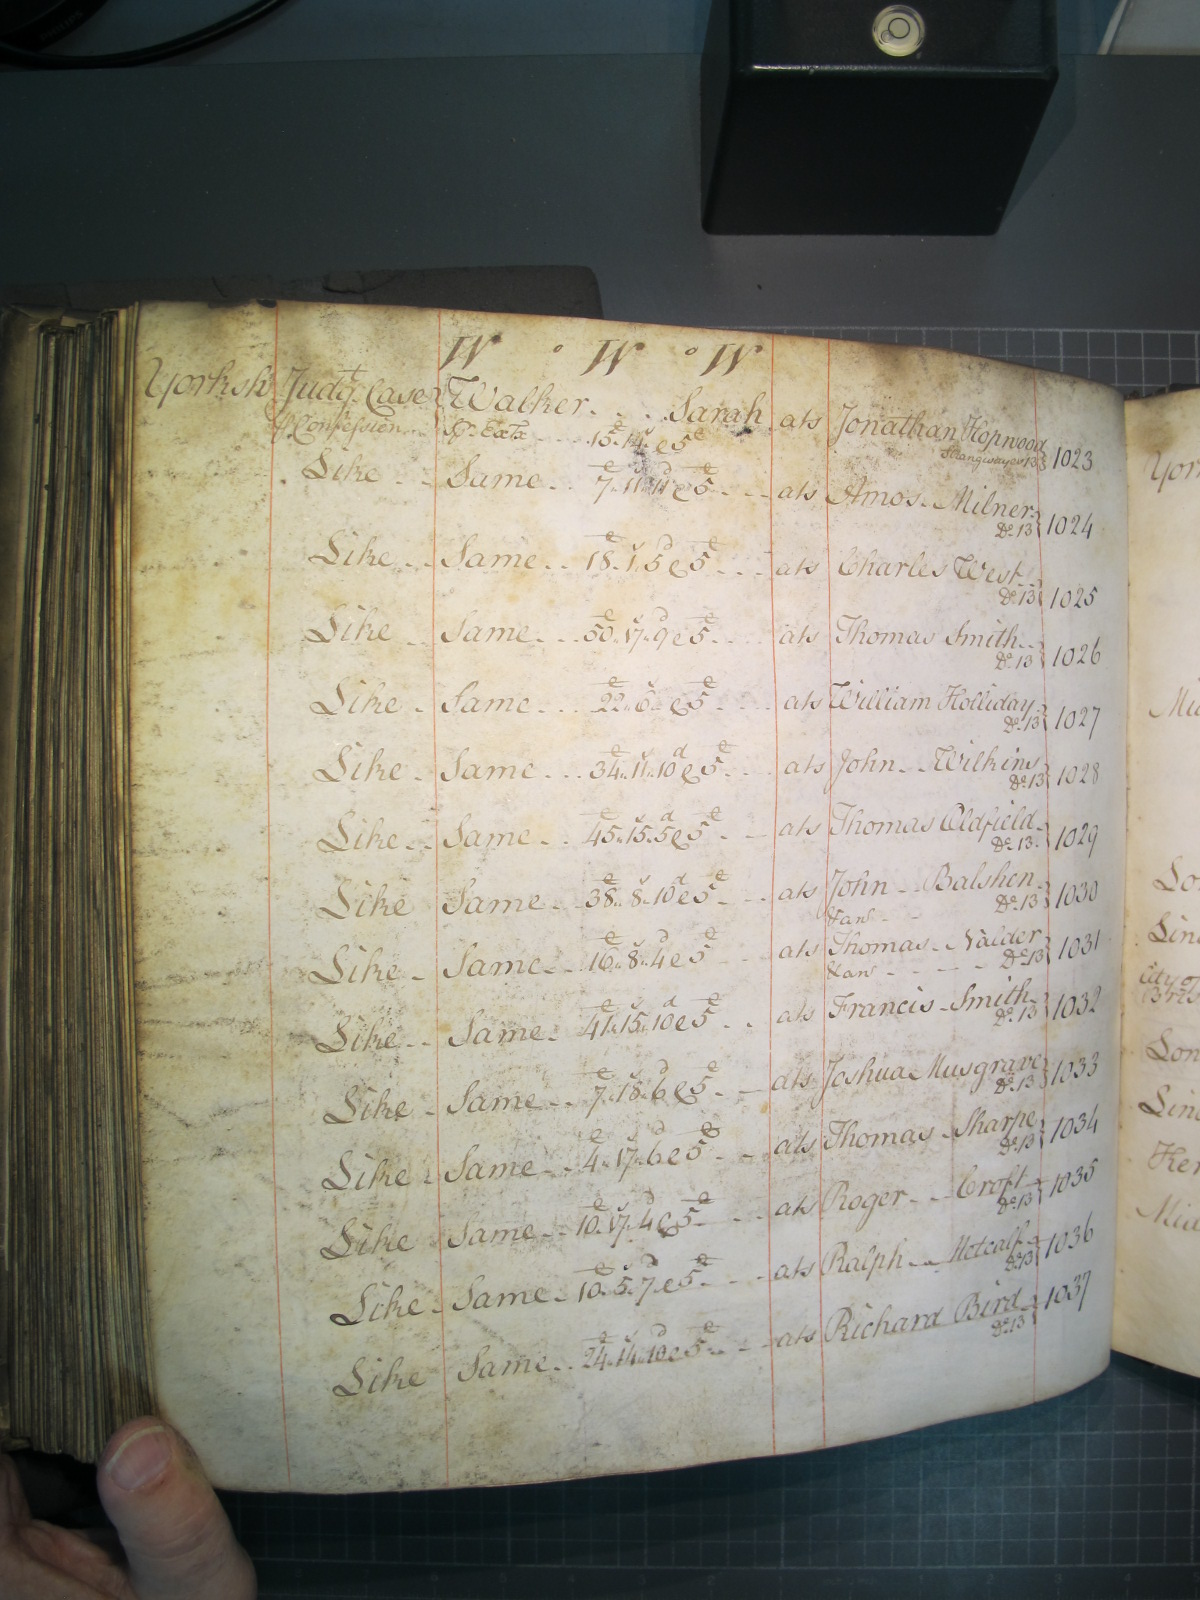 W W W
Yorksh Judgt Case Walker. . . . Sarah ats Jonathan Hopwood 1023
p Confession Exx 15 14 e 5e Strangways 13
Like Same 7 11 11 e 5e ats Amos Milner Do 13 1024
Like Same 18 1 5 e 5e ats Charles West Do 13 1025
Like Same 50 17 9 e 5e ats Thomas Smith Do 13 1026
Like Same 22 6 e 5e ats William Holliday Do 13 1027
Like Same 34 11 10 e 5e ats John Wilkins Do 13 1028
Like Same 45 15 5 e 5e ats Thomas Oldfield Do 13 1029
Like Same 38 8 10 e 5e ats John Balshen Do 13 1030
&an
Like Same 16 8 4 e 5e ats Thomas Nalder Do 13 1031
&an
Like Same 41 15 10 e 5e ats Francis Smith Do 13 1032
Like Same 7 18 6 e 5e ats Joshua Musgrave Do 13 1033
Like Same 4 17 6 e 5e ats Thomas Sharpe Do 13 1034
Like Same 10 17 4 e 5e ats Roger Croft Do 13 1035
Like Same 10 5 7 e 5e ats Ralph Metcalf Do 13 1036
Like Same 24 14 10 e 5e ats Richard Bird Do 13 1037